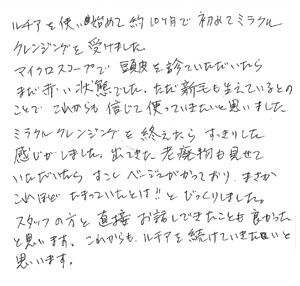 ルチアを使い始めて約10ヶ月で初めてミラクル
クレンジングを受けました
マイクロスコープで頭皮を診ていただいたら
まだ赤い状態でした。ただ新毛も生えているとの
ことでこれからも信じて使っていきたいと思いました
ミラクルクレンジングを終えたらすっきりした
感じがしました。出てきた老廃物も見せて
いただいたらすこしベージュがかっており、まさか
これほどたまっていたとは!!とびっくりしました。
スタッフの方と直接お話しできたことも良かった
と思います。これからもルチアを続けていきたいと
思います。